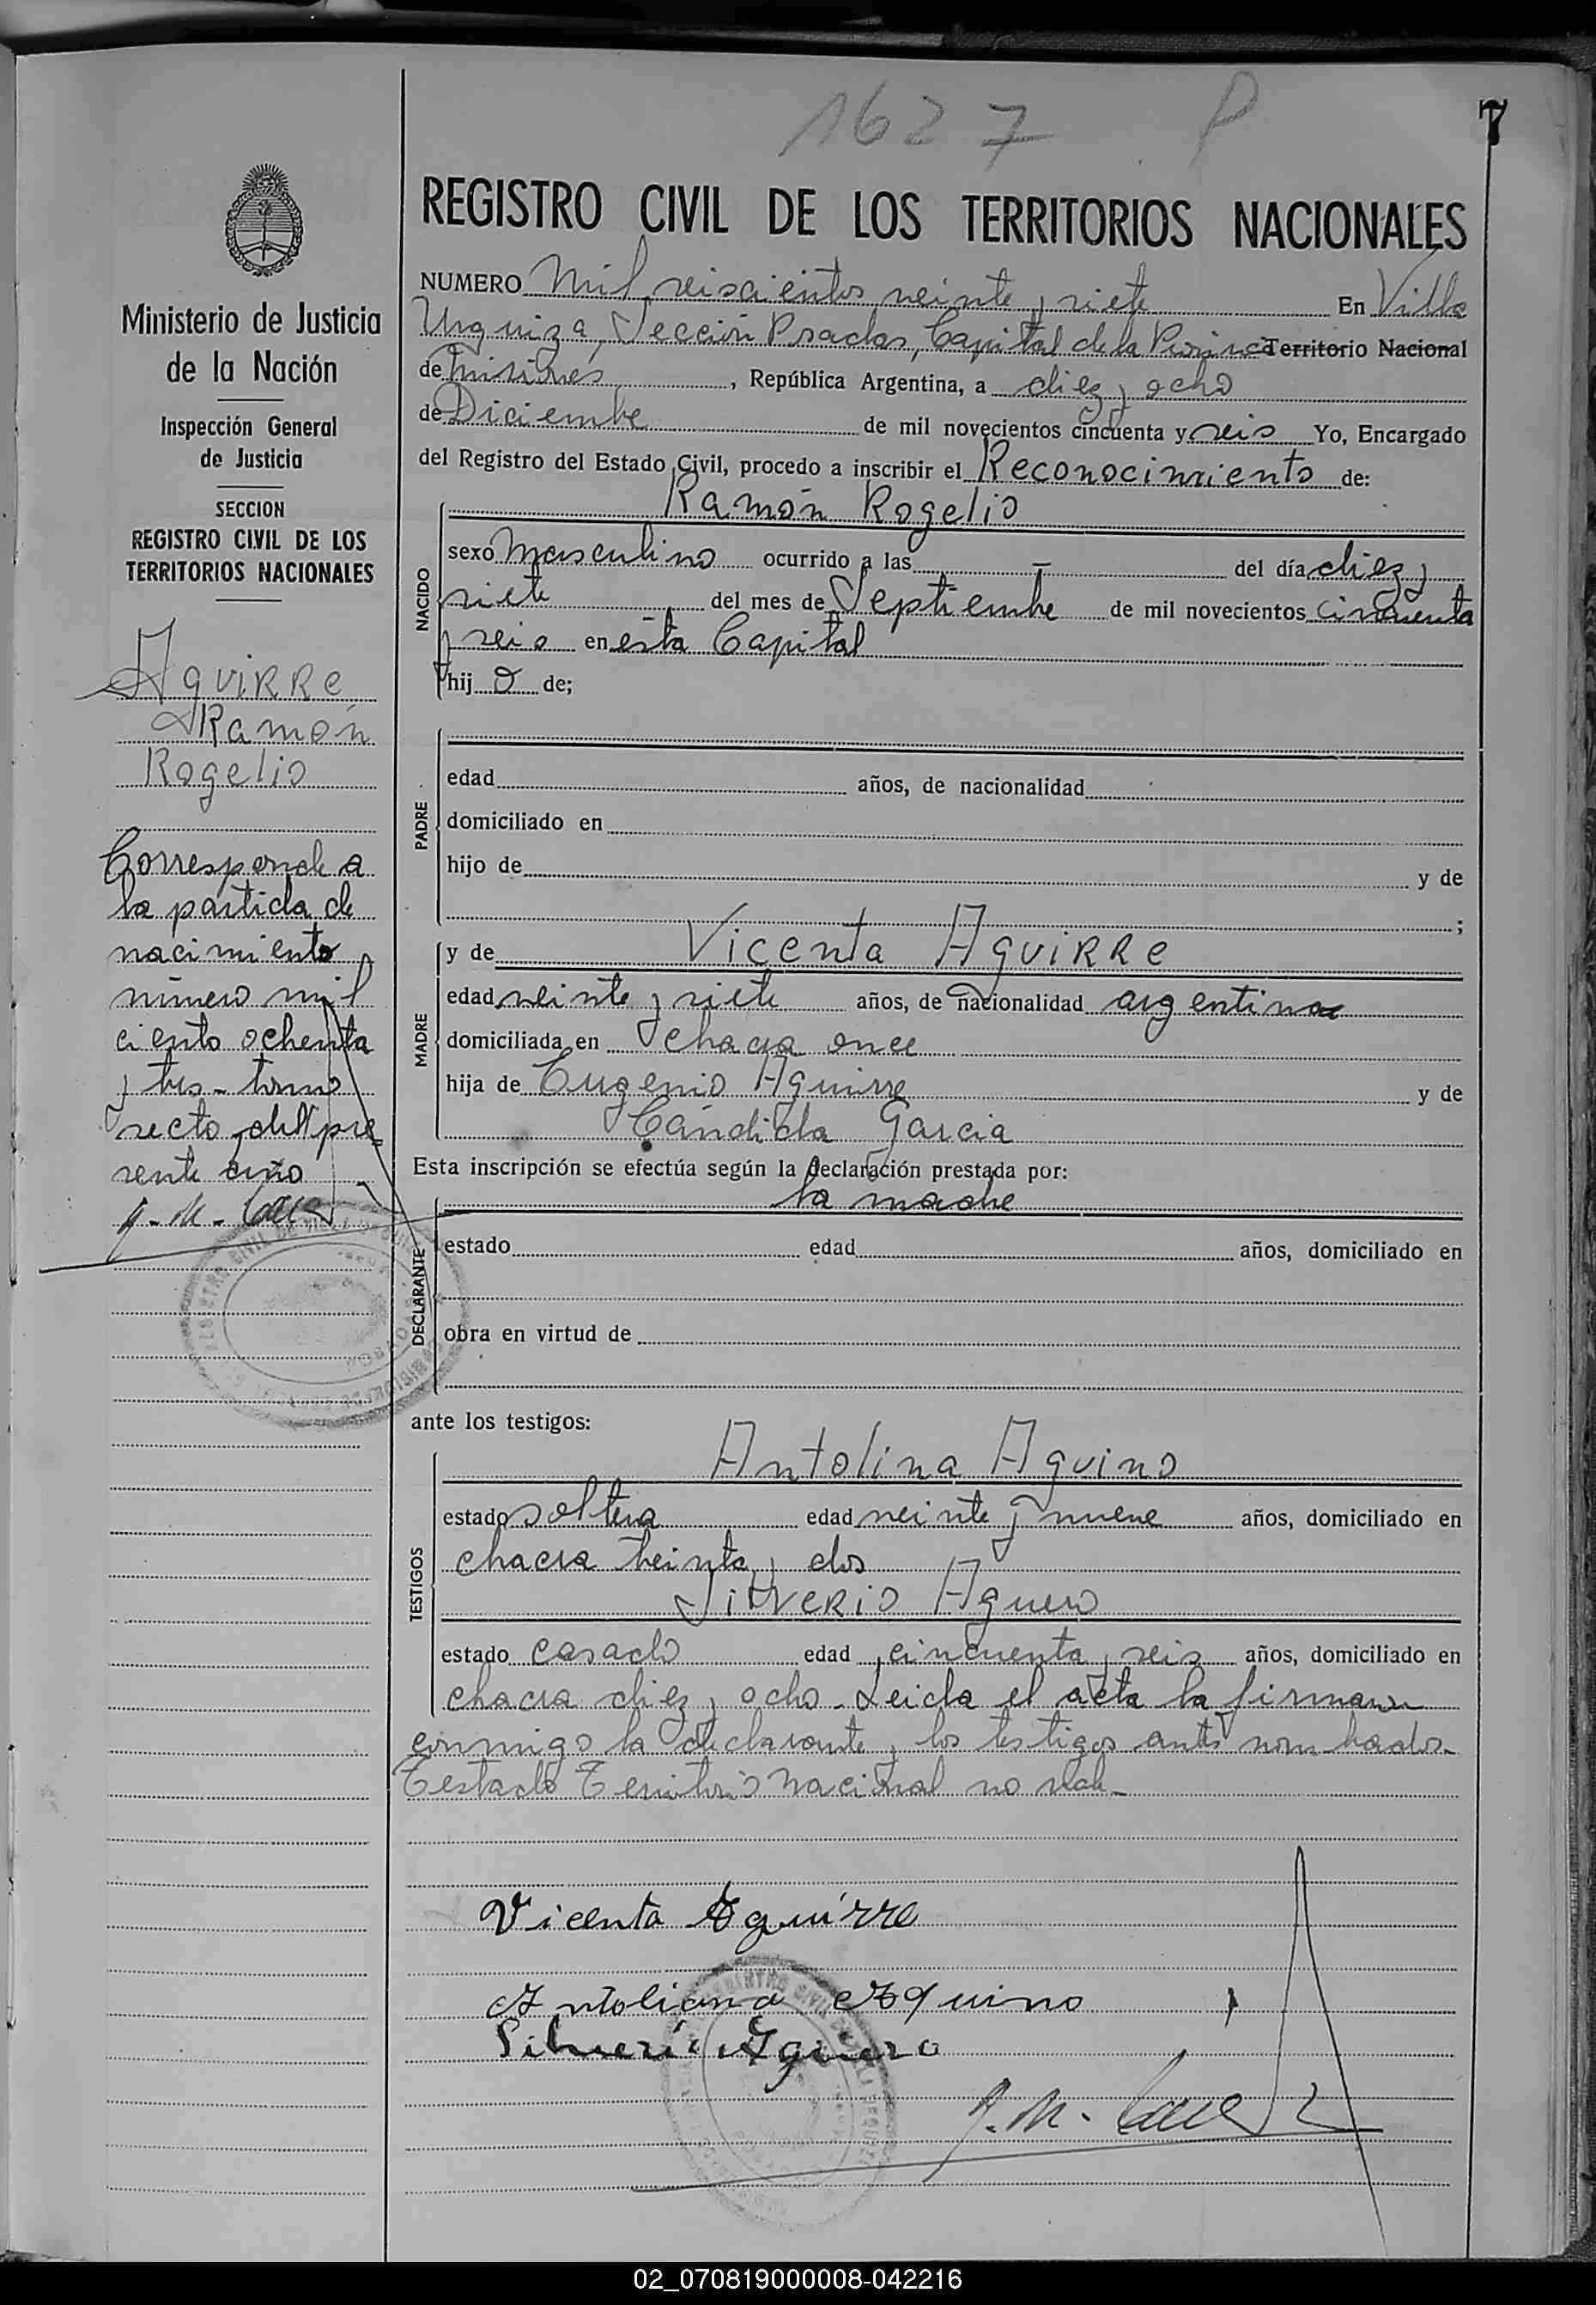 1627 P 7
REGISTRO CIVIL DE LOS TERRITORIOS NACIONALES
NUMERO Mil seiscientos veinte y siete En Villa
Urquiza, Sección Posadas, Capital de la Provincia Territorio Nacional
de Misiones, República Argentina, a diez y ocho
de Diciembre de mil novecientos cincuenta y seis Yo, Encargado
del Registro del Estado Civil, procedo a inscribir el Reconocimiento de:
Ramón Rogelio
sexo masculino ocurrido a las - del día diez y
siete del mes de Septiembre de mil novecientos cincuenta
y seis en esta Capital
hijo de;
NACIDO
edad años, de nacionalidad
domiciliado en
hijo de y de
;
PADRE
y de Vicenta Aguirre
edad veinte y siete años, de nacionalidad argentina
domiciliada en chacra once
hija de Eugenio Aguirre y de
Cándida Garcia
MADRE
Esta inscripción se efectúa según la declaración prestada por:
la madre
estado edad años, domiciliado en
obra en virtud de
DECLARANTE
ante los testigos:
Antolina Aquino
estado soltera edad veinte y nueve años, domiciliado en
chacra treinta y dos
Silverio Aguero
estado casado edad cincuenta y seis años, domiciliado en
chacra diez y ocho. Leida el acta la firman
conmigo la declarante y los testigos antes nombrados.
Testado Territorio Nacional no vale-
TESTIGOS
Vicenta Aguirre
Antoliana Aquino
Silverio Aguero
J. M.
Ministerio de Justicia
de la Nación
Inspección General
de Justicia
SECCION
REGISTRO CIVIL DE LOS
TERRITORIOS NACIONALES
Aguirre
Ramón
Rogelio
Corresponde a
la partida de
nacimiento
número mil
ciento ochenta
y tres - tomo
sexto del pre
sente año
J. M.
02_070819000008-042216